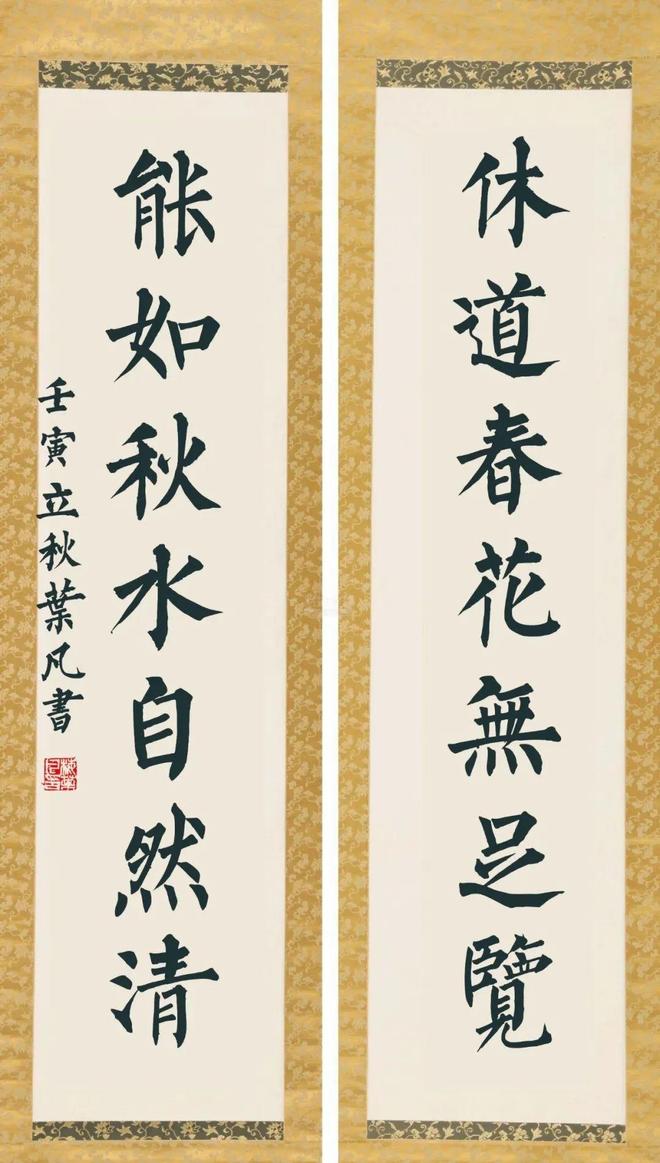 休道春花無足覽
能如秋水自然清
壬寅立秋葉凡書